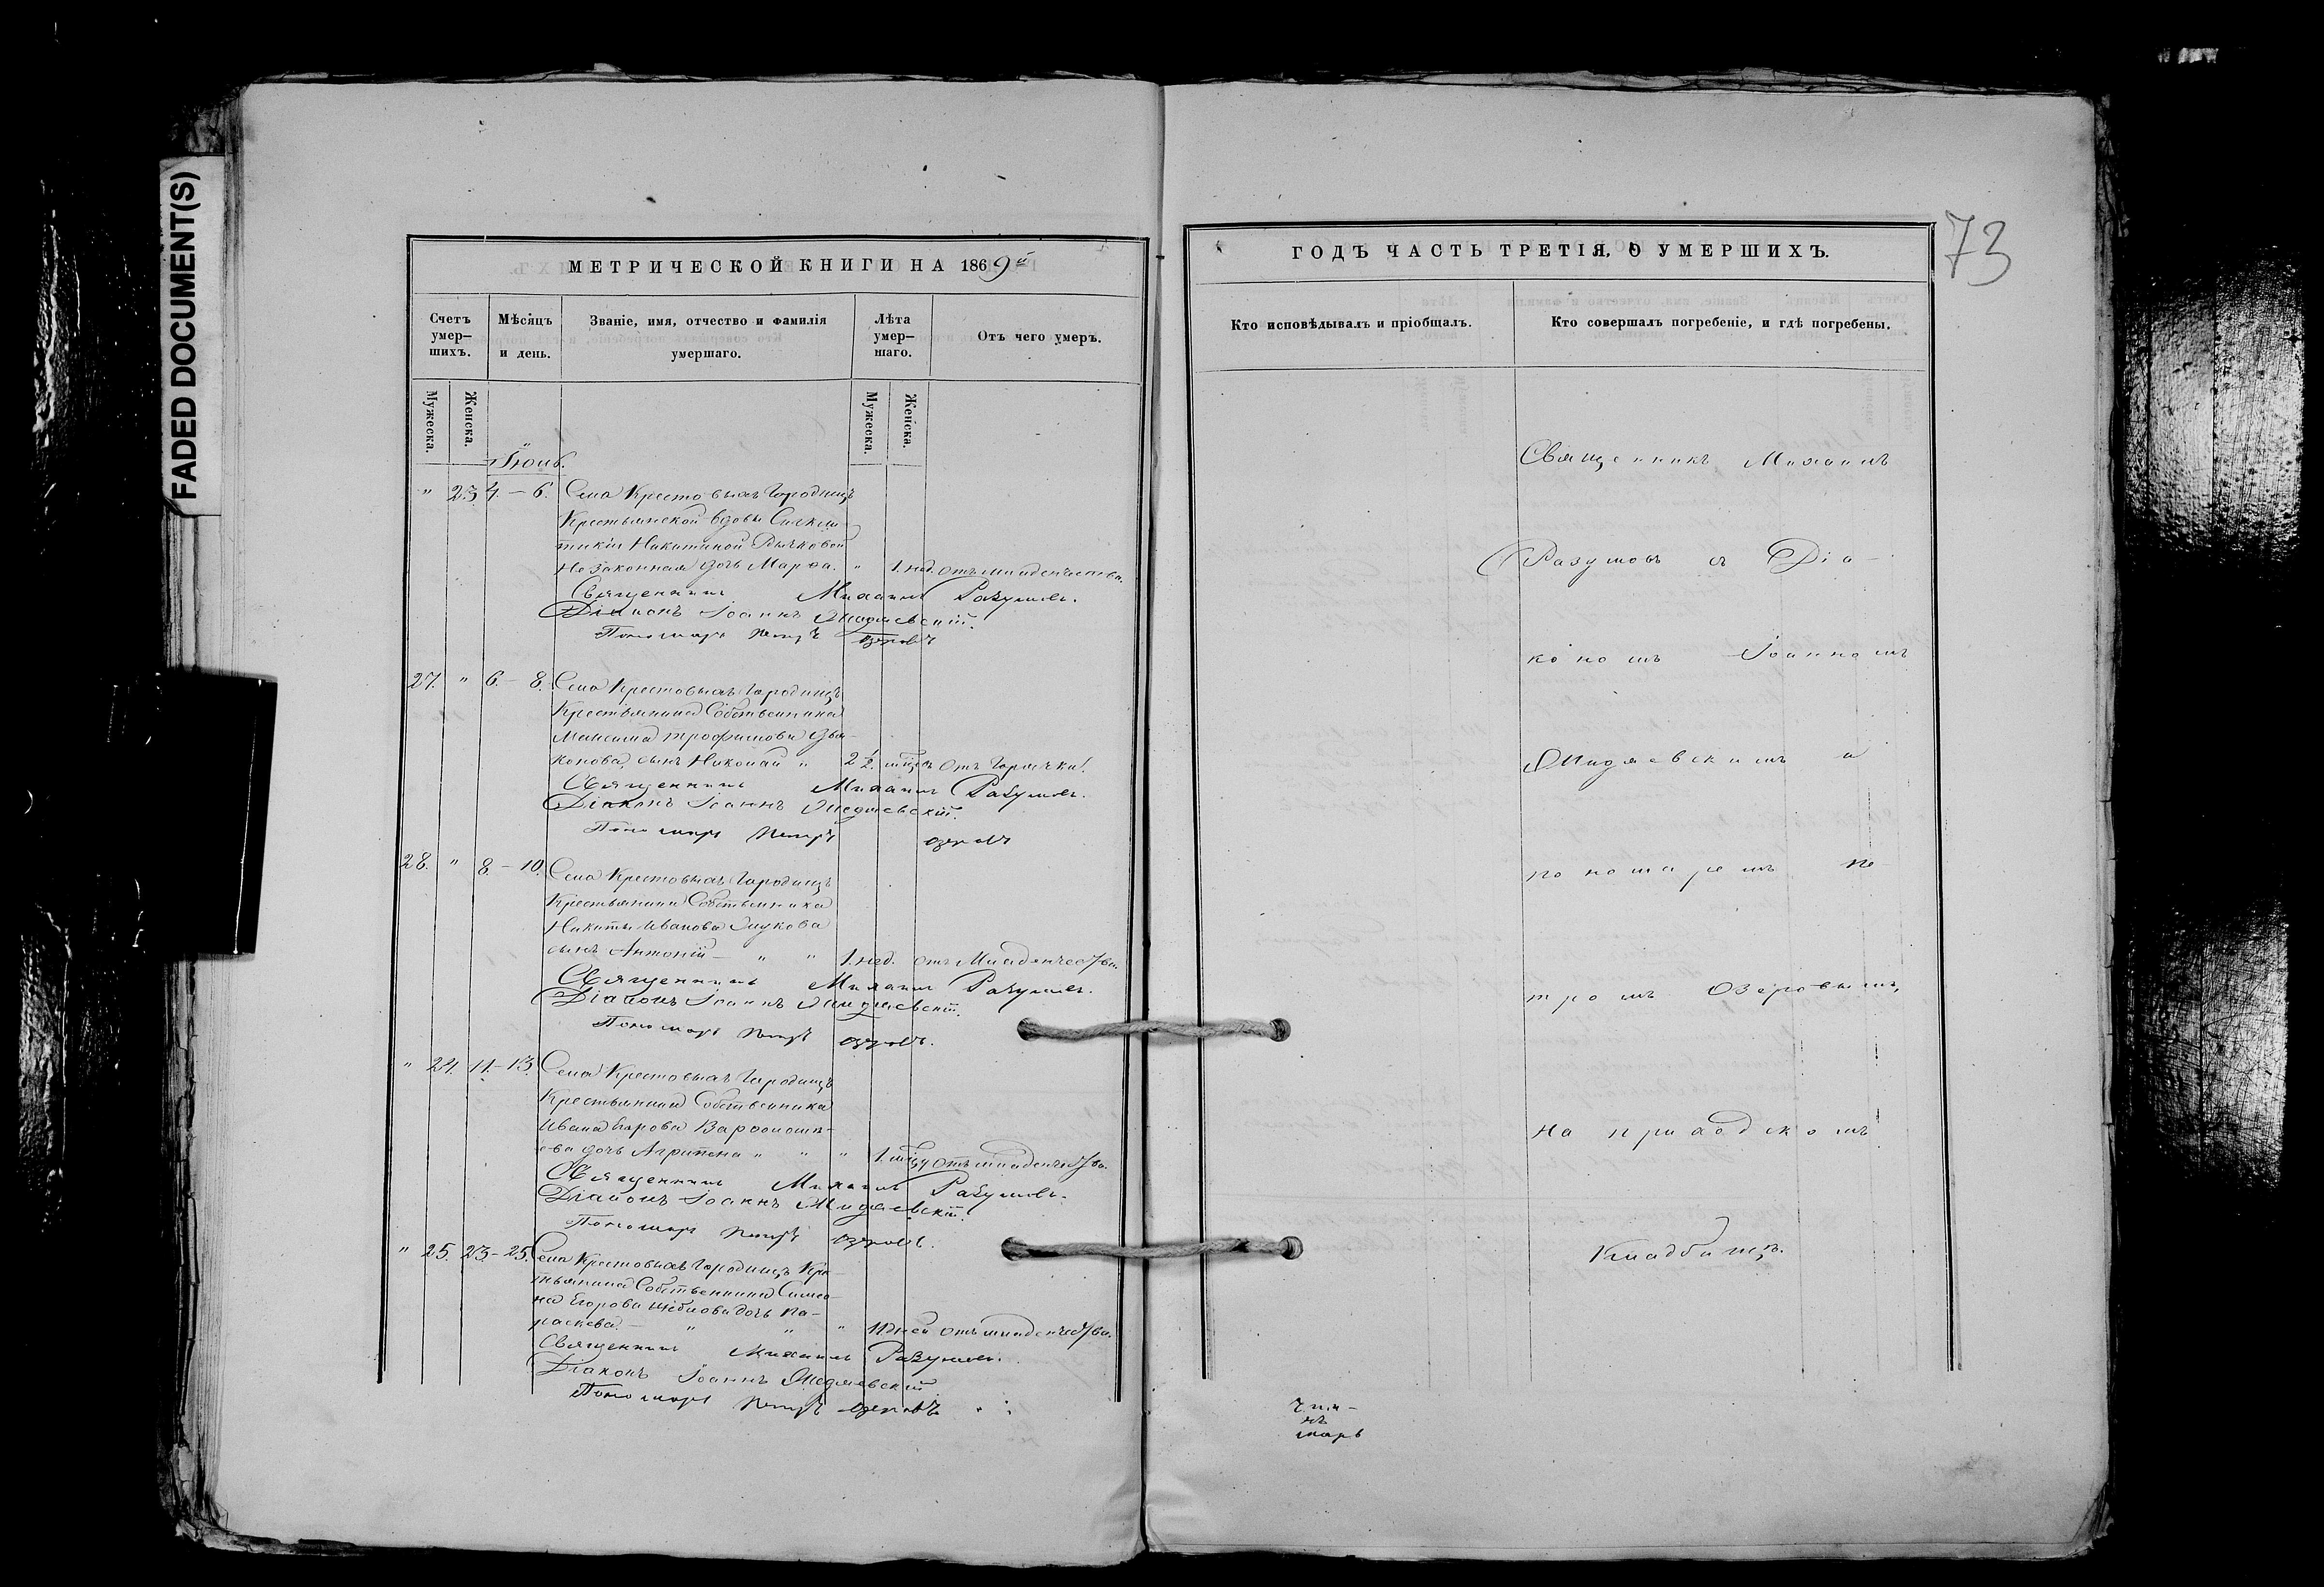 FADED DOCUMENT(S)
МЕТРИЧЕСКОЙ КНИГИ НА 1869й
Счетъ умер-шихъ.
Мѣсяцъ и день.
Званіе, имя, отчество и фамилія умершаго.
Лѣта умер-шаго.
Отъ чего умеръ.
Мужеска.
Женска.
Мужеска.
Женска.
Іюнь.
" 23 4. – 6. Села Крестовыхъ Городищъ
Крестьянской вдовы
Никитиной Рычковой
Незаконная дочь Марѳа. " 1. нед. отъ младенчества.
Священникъ Михаилъ Разумовъ.
Діаконъ Іоаннъ
Пономарь Петръ Озеровъ
27. " 6. – 8. Села Крестовыхъ Городищъ
Крестьянина Собственника
Максима Трофимова Дья-
конова, сынъ Николай " 2 1/2. мѣсяц. Отъ Горячки.
Священникъ Михаилъ Разумовъ.
Діаконъ Іоаннъ
Пономарь Петръ Озеровъ
28. " 8. – 10. Села Крестовыхъ Городищъ
Крестьянина Собственника
Никиты Иванова Глукова
сынъ Антоній – " " 1. нед. отъ Младенчества.
Священникъ Михаилъ Разумовъ.
Діаконъ Іоаннъ
Пономарь Петръ Озеровъ.
" 24. 11. – 13. Села Крестовыхъ Городищъ
Крестьянина Собственника
Ивана Варѳоломѣ-
ева дочь Агрипена " " " 1. мѣсяц. отъ младенчества.
Священникъ Михаилъ Разумовъ.
Діаконъ Іоаннъ
Пономарь Петръ Озеровъ.
" 25. 23 – 25. Села Крестовыхъ Городищъ Кре-
стьянина Собственника Симео-
на Егорова дочь Па-
раскева. – " " " 11 дней отъ младенчества.
Священникъ Михаилъ Разумовъ.
Діаконъ Іоаннъ
Пономарь Петръ Озеровъ
ГОДЪ ЧАСТЬ ТРЕТІЯ, О УМЕРШИХЪ.
73
Кто исповѣдывалъ и пріобщалъ.
Кто совершалъ погребеніе, и гдѣ погребены.
Священникъ Михаилъ
Разумовъ съ Діа-
кономъ Іоанномъ
и
пономаремъ Пе
тромъ Озеровымъ,
на приходскомъ
Кладбищѣ.
марь